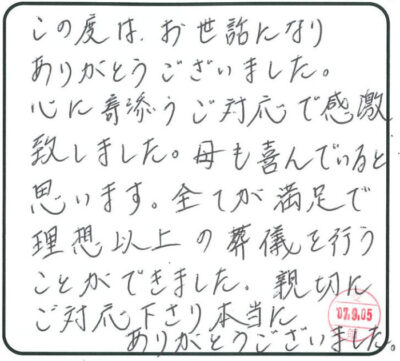 この度は、お世話になり
ありがとうございました。
心に寄添うご対応で感激
致しました。母も喜んでいると
思います。全てが満足で
理想以上の葬儀を行う
ことができました。親切に
ご対応下さり本当に
ありがとうございました。
07.9.05